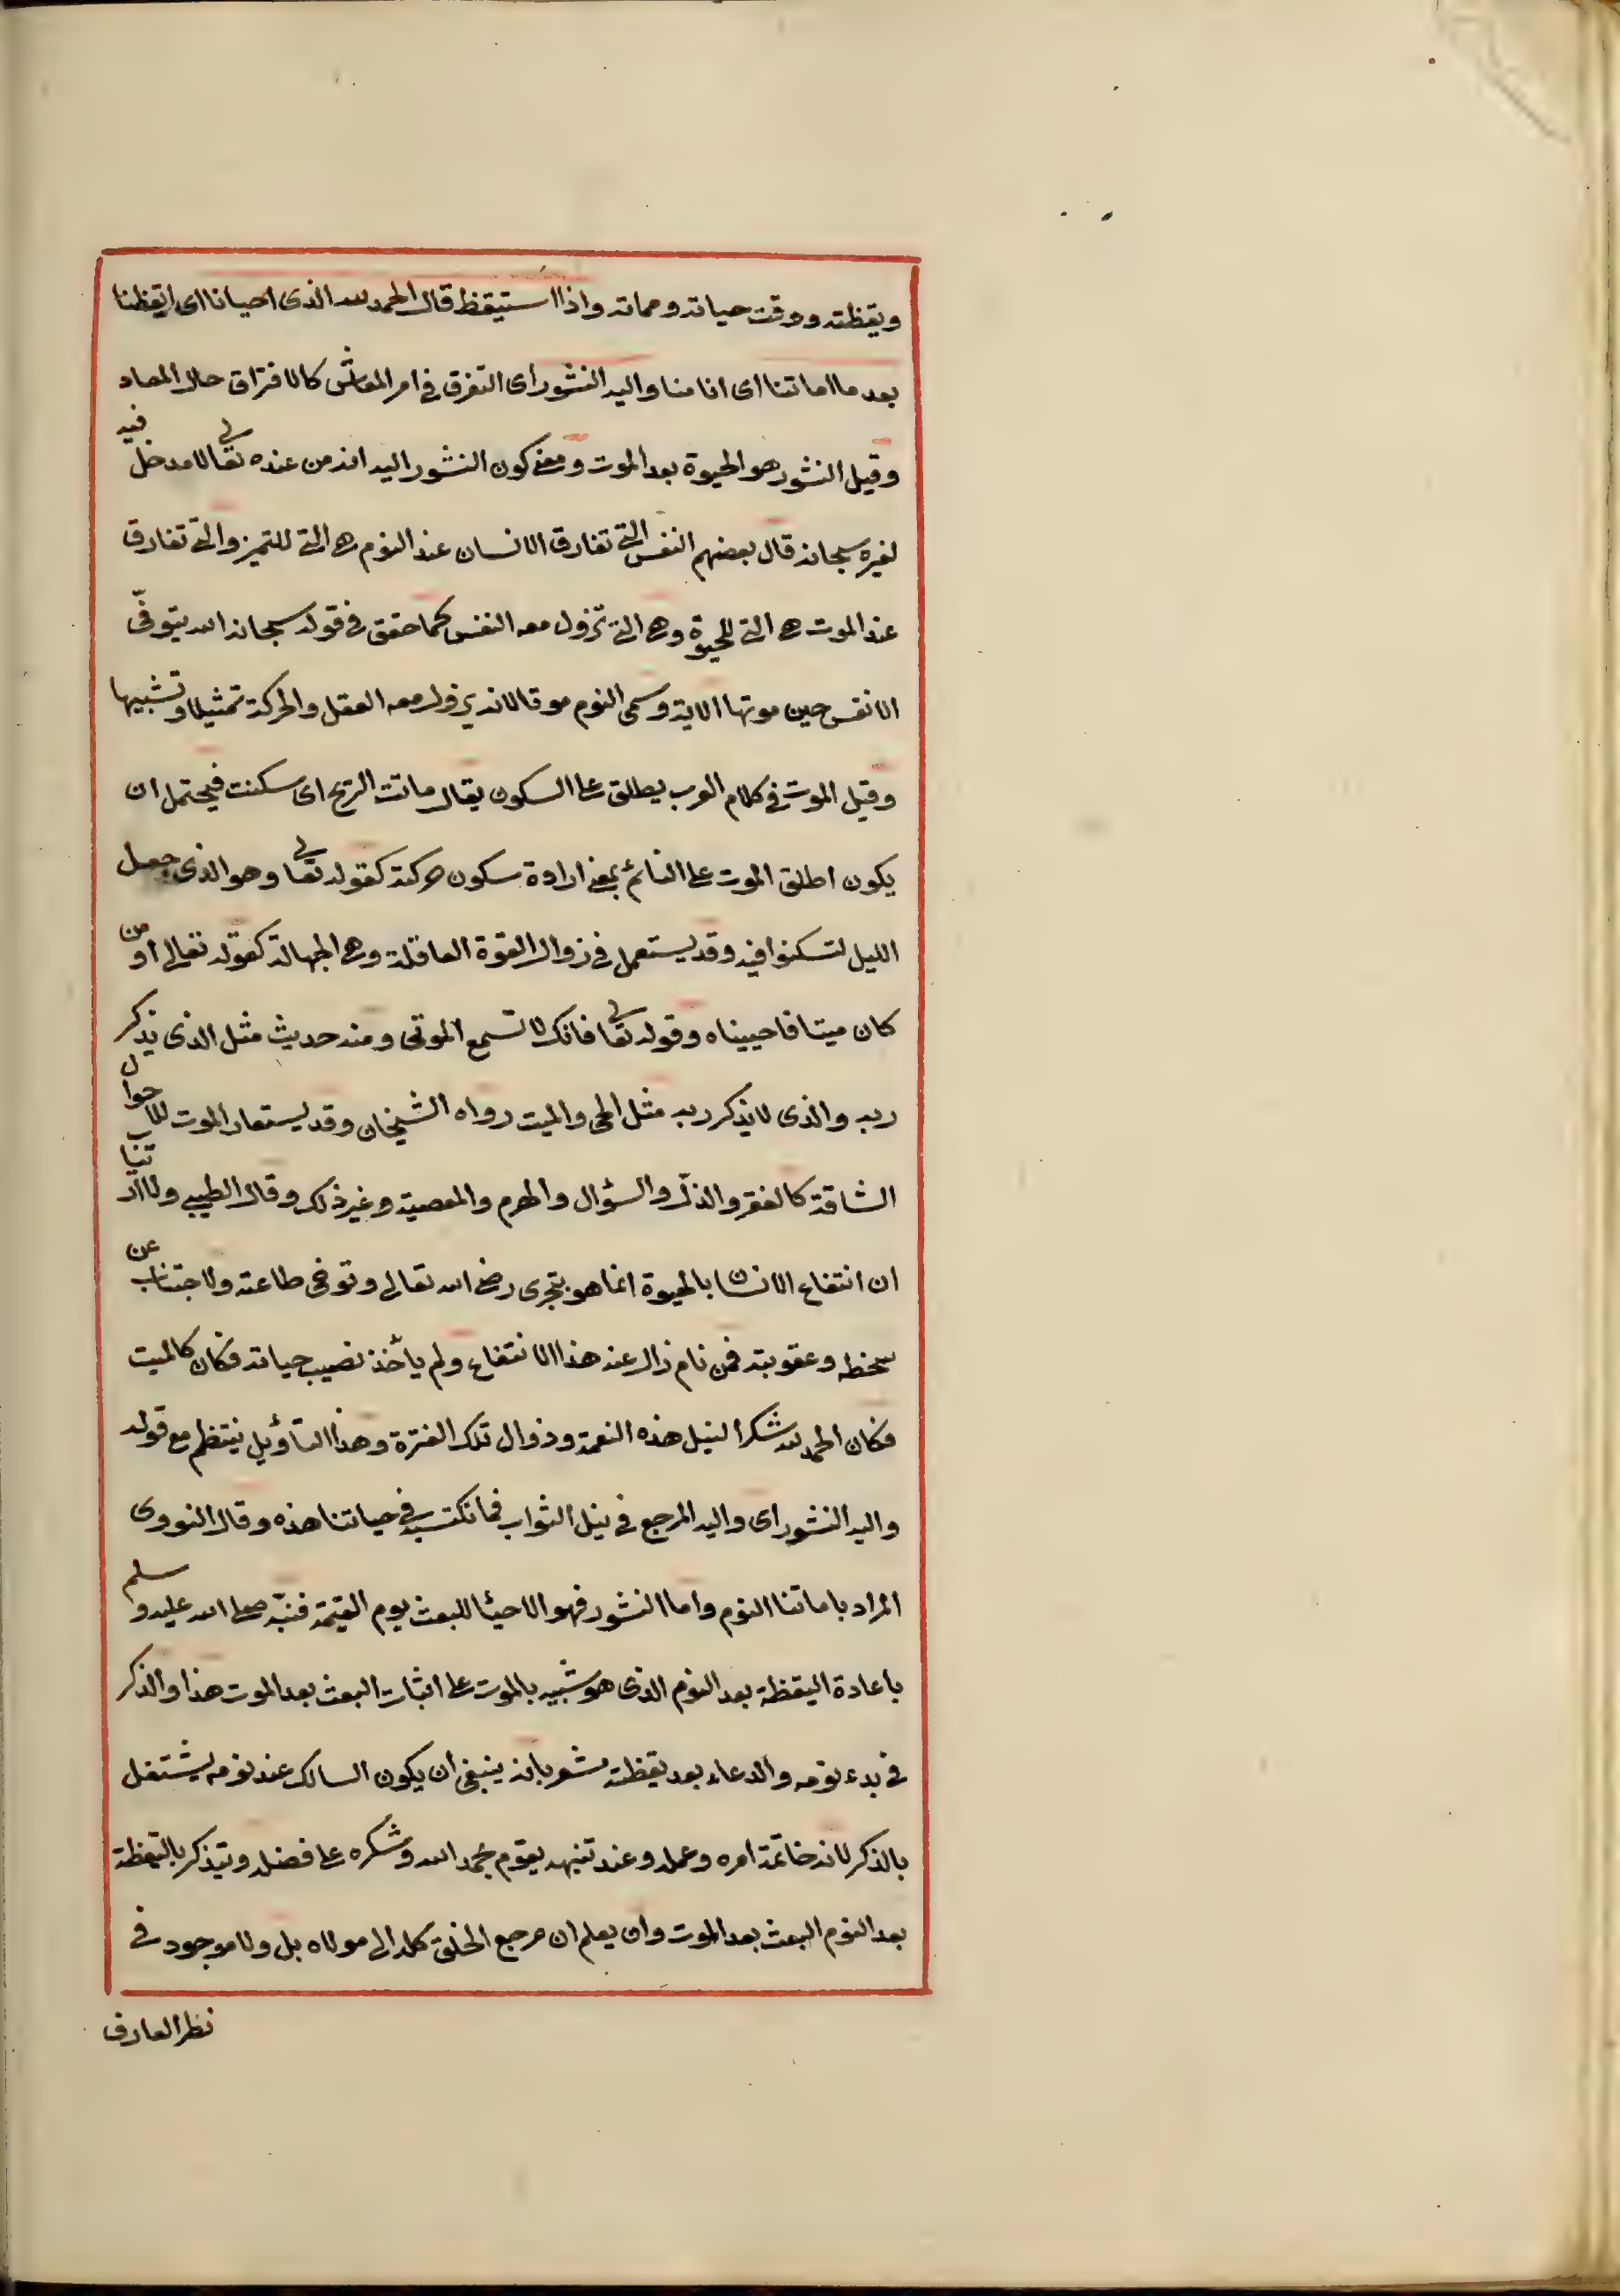 ويقظته ووقت حياته ومماته واذا استيقظ قال الحمد لله الذى احيانا اى ايقظنا
بعد ما اماتنا اى انامنا واليه النشور اى التفرق فى امر المعاش كالافتراق حال المعاد
وقيل النشور هو الحيوة بعد الموت ومعنى كون النشور اليه انه من عنده تعالى لا مدخل فيه
لغيره سبحانه قال بعضهم النفس التى تفارق الانسان عند النوم هى التى للتميز والتى تفارق
عند الموت هى التى للحيوة وهى التى تزول معه النفس كما حقق فى قوله سبحانه الله يتوفى
الانفس حين موتها الاية وسمى النوم موتا لانه يزول معه العقل والحركة تمثيلا وتشبيها
وقيل الموت فى كلام العرب يطلق على السكون يقال ماتت الريح اى سكنت فيحتمل ان
يكون اطلق الموت على النائم بمعنى ارادة سكون حركته كقوله تعالى وهو الذى جعل
الليل لتسكنوا فيه وقد يستعمل فى زوال القوة العاقلة وهى الجهالة كقوله تعالى أو من
كان ميتا فاحييناه وقوله تعالى فانك لا تسمع الموتى ومنه حديث مثل الذى يذكر
ربه والذى لا يذكر ربه مثل الحى والميت رواه الشيخان وقد يستعار الموت للاحوال
الشاقة كالفقر والذل والسؤال والهرم والمعصية وغير ذلك وقال الطيبى ولا ارتياب
ان انتفاع الانسان بالحيوة انما هو بتحرى رضى الله تعالى وتوخى طاعته ولاجتناب عن
سخطه وعقوبته فمن نام زال عنه هذا الانتفاع ولم يأخذ نصيب حياته فكان كالميت
فكان الحمد لله شكرا لنيل هذه النعمة وزوال تلك الفترة وهذا التأويل ينتظم مع قوله
واليه النشور اى واليه المرجع فى نيل الثواب فما نكتسبه فى حياتنا هذه وقال النووى
المراد باماتنا النوم واما النشور فهو الاحيأ للبعث يوم القيمة فنبّه صلى الله عليه وسلم
باعادة اليقظة بعد النوم الذى هو شبيه بالموت على اثبات البعث بعد الموت هذا والذكر
فى بدء نومه والدعاء بعد يقظته مشعر بانه ينبغى ان يكون السالك عند نومه يشتغل
بالذكر لانه خاتمة امره وعمله وعند تنبهه يقوم بحمد الله وشكره على فضله ويتذكر باليقظة
بعد النوم البعث بعد الموت وان يعلم ان مرجع الخلق كله الى مولاه بل ولا موجود فى
نظر العارف